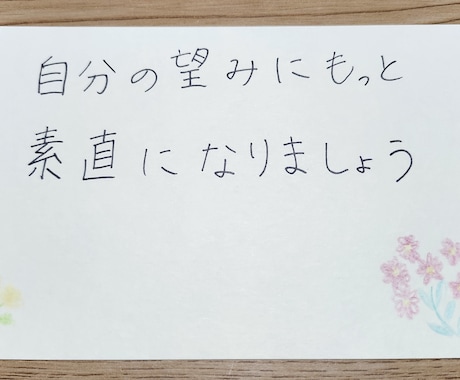 自分の望みにもっと
素直になりましょう